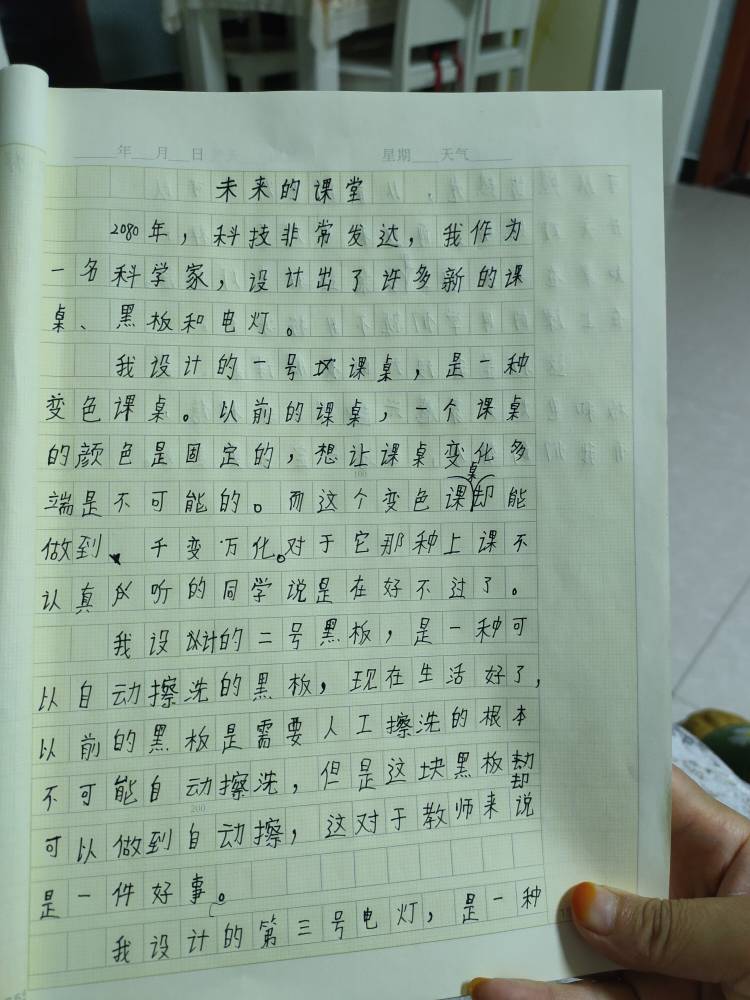 年 月 日 星期 天气
未来的课堂
2080年，科技非常发达，我作为
一名科学家，设计出了许多新的课
桌、黑板和电灯。
我设计的一号课桌，是一种
变色课桌。以前的课桌，一个课桌
的颜色是固定的，想让课桌变化多
100
端是不可能的。而这个变色课桌却能
做到、千变万化。对于它那种上课不
认真听的同学说是在好不过了。
我设计的二号黑板，是一种可
以自动擦洗的黑板，现在生活好了，
以前的黑板是需要人工擦洗的根本
不可能自动擦洗，但是这块黑板却
200
可以做到自动擦，这对于教师来说
是一件好事。
我设计的第三号电灯，是一种